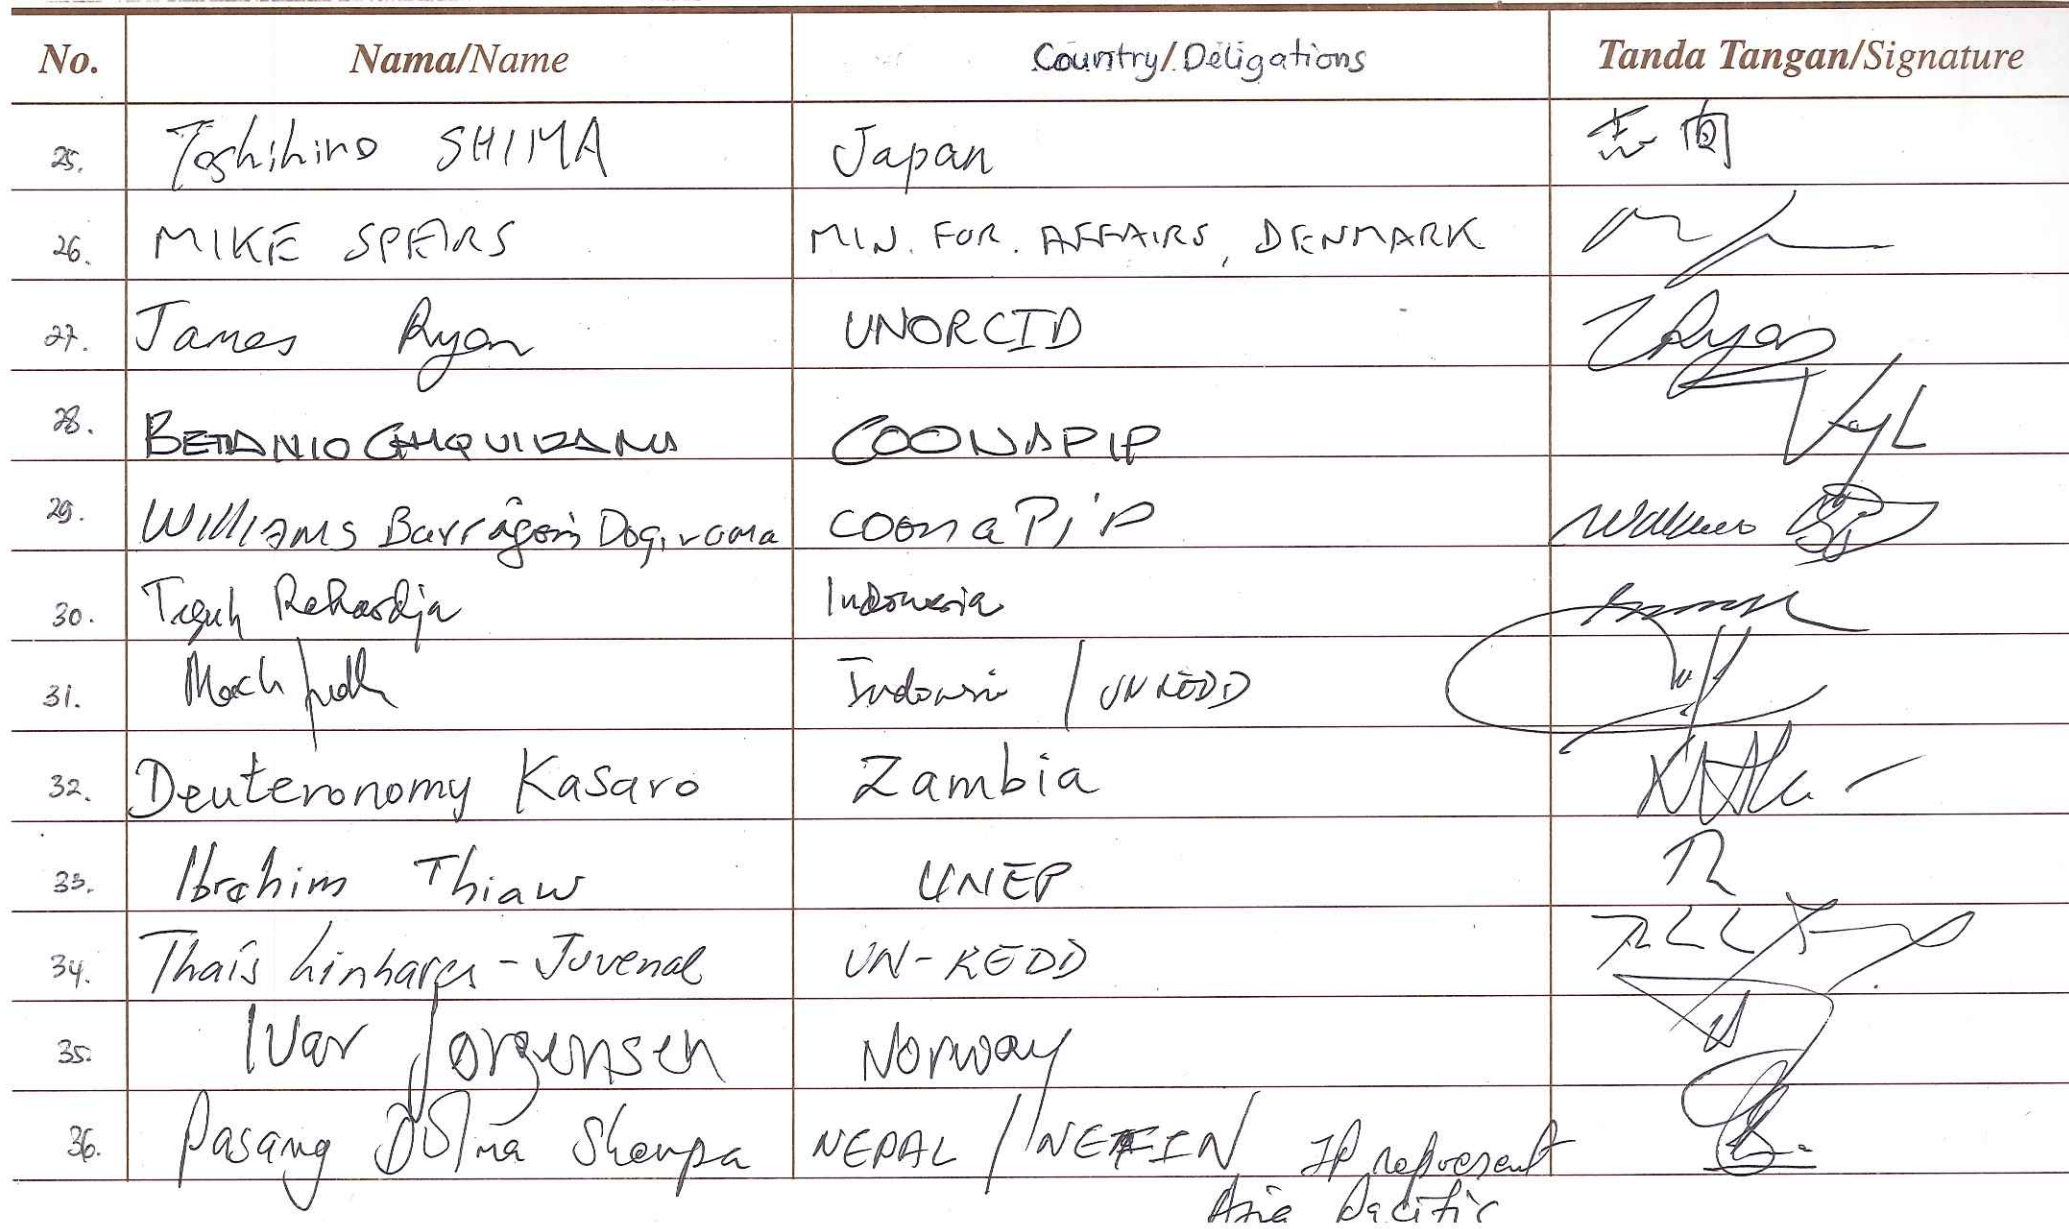 No. Nama/Name Country/Deligations Tanda Tangan/Signature
25. Toshihiro SHIMA Japan 志間
26. MIKE SPEARS MIN. FOR. AFFAIRS, DENMARK
27. James Ryan UNORCID JRyan
28. BETANIO CHIQUIDAMA COONAPIP
29. Williams Barrágon Dogirama coonaPiP
30. Teguh Rahardja Indonesia
31. Machfudh Indonesia / UNREDD
32. Deuteronomy Kasaro Zambia
33. Ibrahim Thiaw UNEP
34. Thaís Linhares-Juvenal UN-REDD
35. Ivar Jørgensen Norway
36. Pasang Dolma Sherpa NEPAL / NEFIN IP represent
Asia Pacific